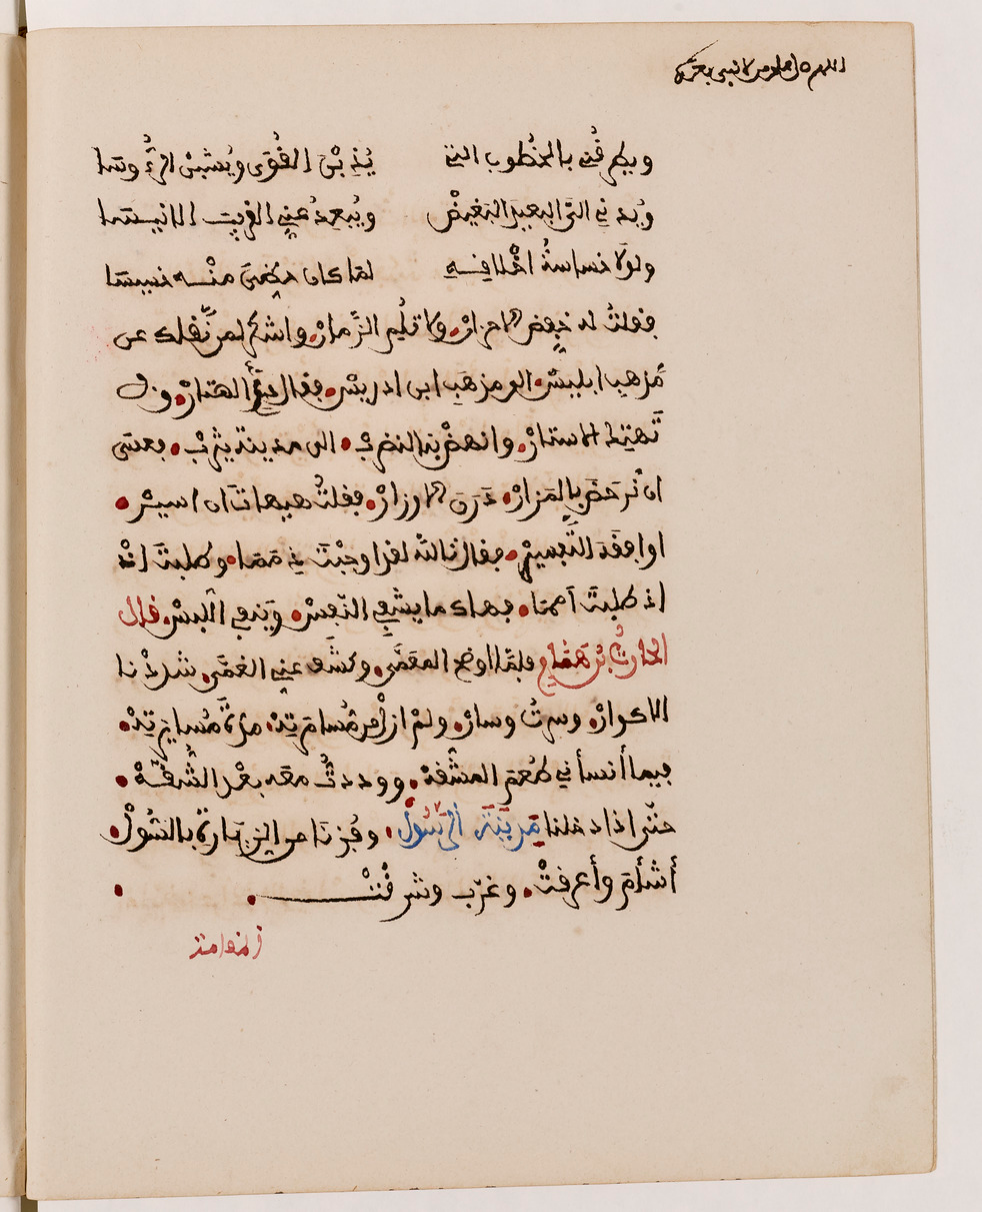 اللهم صل على من لا نبي بعده
ويطرقني بالخطوب التي يُذبْن القُوَى ويُشبْن الرُّءُوسَا
ويُدني الىّ البعيد البَغيضْ ويُبعِدُ عنِي القريبَ الانيسَا
ولولا خساسةُ اخْلاقِهِ لمَا كان حظِّي منْه خسيسَا
فقلتُ له خفِّض الاحزانْ ولا تلُم الزَّمانْ واشكُر لمن نَّقلك عن
مَّذهب ابليسْ الى مذهَب ابن ادريسْ فقال دع الهتارْ ولا
تَهتِك الاستارْ وانهضْ بنا لنضربْ الى مدينة يثربْ فعسَى
ان نرحَضَ بالمَزارْ دَرَن الاوزارْ فقلتُ هيهاتَ ان اسيرْ
او افقَه التَّفسيرْ فقال تاللّه لقد اوجبْتَ ذِممَا وطلبتَ اذْ
اذ طلبتَ أَممَا فهاك ما يشفي النّفسْ وينفي اللَّبسْ قال
الحارثُ بن همَّام فلمّا اوضح المعمَّى وكشَف عنِي الغمَّى شددْنا
الاكوارْ وسرتُ وسارْ ولمْ ازلْ من مُّسامرتِهْ مدّةَ مُسايرتِهْ
فيما أنسأني طعْمَ المشَّقةْ ووددتُّ معَه بعْد الشُّقّةْ
حتّى اذا دخلنا مَدينَةَ الرَّسُولْ وفُزنا من الزيَارة بالسُّولْ
أشأَمَ وأعرقتْ وغرّب وشرقْتْ